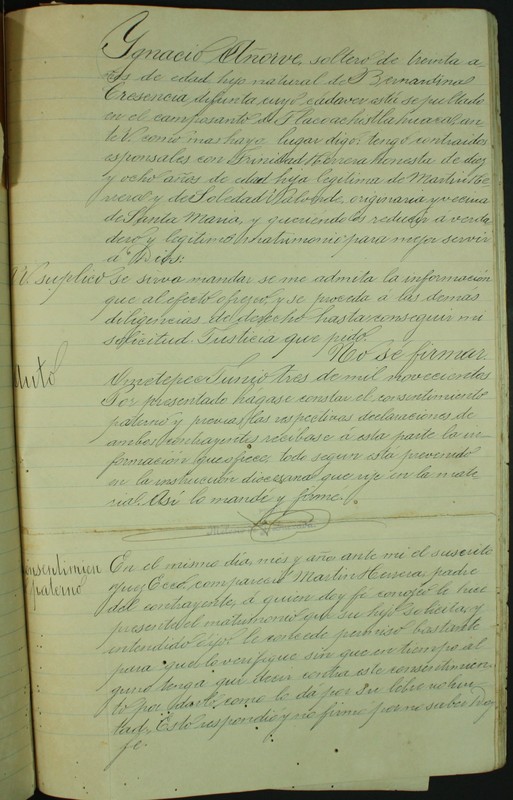 Ygnacio Añorve, soltero de treinta a
ños de edad hijo natural de Bernardina
Cresencia difunta cuyo cadaver está sepultado
en el camposanto de Tlacoachistlahuaca, an-
te V. como mas haya lugar digo: tengo contraidos
esponsales con Trinidad Herrera honesta de diez
y ocho años de edad hija legitima de Martin He
rrera y de Soledad originaria y vecina
de Santa Maria, y queriendolos reducir a verda
dero y legitimo matrimonio para mejor servir
á Dios:
A V. suplico se sirva mandar se me admita la información
que al efecto ofrezco, y se proceda a las demas
diligencias de derecho hasta conseguir mi
solicitud. Justicia que pido.
No sé firmar.
Auto
Ometepec Junio tres de mil novecientos
Por presentado hagase constar el consentimiento
paterno y previas las respectivas declaraciones de
ambos contrayentes recibase á esta parte la in-
formación que ofrece, todo segun esta prevenido
en la instrucción diocesana que rije en la mate
ria. Así lo mandé y firmé.
Consentimien
paterno
En el mismo día, mes y año ante mi el suscrito
compareció Martin Herrera, padre
del contrayente, á quien doy fe conozco le hice
presente el matrimonio que su hija solicita, y
entendido dijo: le concede permiso bastante
para que lo verifique sin que en tiempo al
guno tenga que decir contra este consentimien
to por darlo como lo da por su libre volun
tad. Esto respondió y no firmó por no saber Doy
fe.